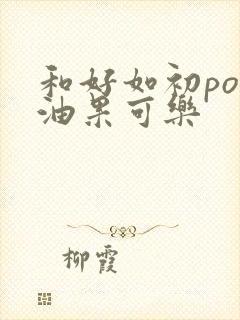 和好如初po
油果可樂
柳霞